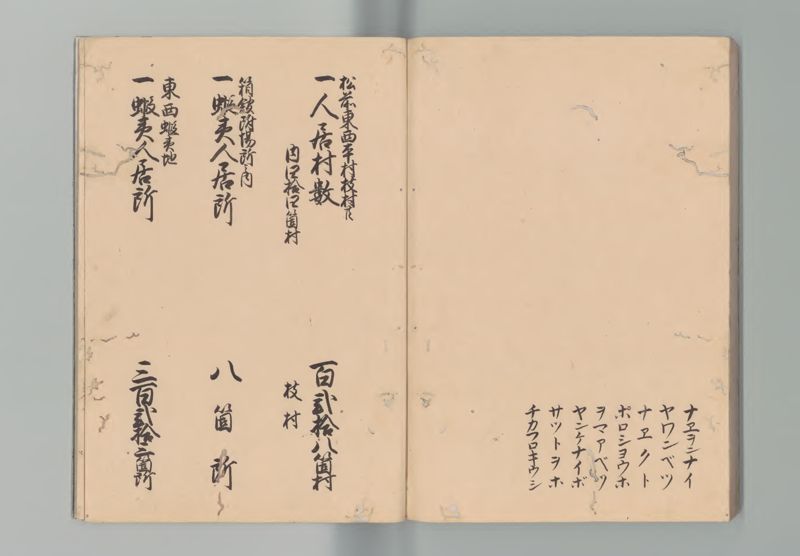 ナヱヲシナイ
ヤワンベツ
ナヱクト
ポロシヨウホ
ヲマアベツ
ヤンケナイボ
サツトヲホ
チカフロキウシ
松前東西平村枝村
一人居村数 百弐拾八箇村
内四拾四箇村 枝村
箱館附場所内
一蝦夷人居所 八箇所
東西蝦夷地
一蝦夷人居所 三百弐拾六箇所